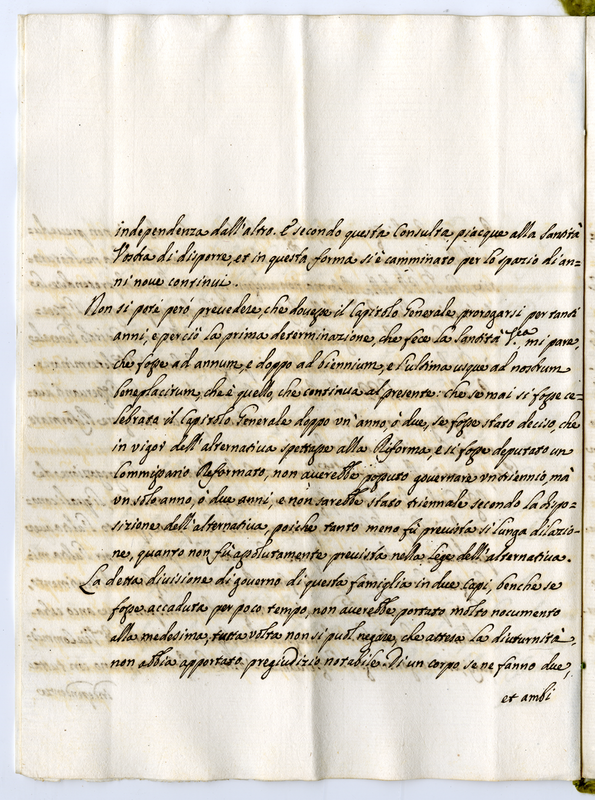 independenza dall'altro. E secondo questa Consulta piacque alla Santità
Vostra di disporre, et in questa forma si è camminato per lo spazio di an=
ni nove continui.
Non si potè però prevedere, che dovesse il Capitolo Generale prorogarsi per tanti
anni, e perciò la prima determinazione, che fece la Santità V.ra mi pare,
che fosse ad annum, e doppo ad biennium, e l'ultima usque ad nostrum
beneplacitum, che è quello, che continua al presente: che se mai si fosse ce=
lebrato il Capitolo Generale doppo un'anno, ò due, se fosse stato deciso, che
in vigor dell'alternativa spettasse alla Riforma, e si fosse deputato un
Commissario Reformato, non averebbe potuto governare un triennio, mà
un solo anno, ò due anni, e non sarebbe stato triennale secondo la dispo=
sizione dell'alternativa, poiche tanto meno fù prevista si lunga dilazio=
ne, quanto non fù assolutamente prevista nella lege dell'alternativa.
La detta divisione di governo di questa famiglia in due Capi, benche se
fosse accaduta per poco tempo, non averebbe portato molto nocumento
alla medesima, tutta volta non si può negare, che attesa la diuturnità,
non abbia apportato pregiudizio notabile. Di un corpo se ne fanno due,
et ambi